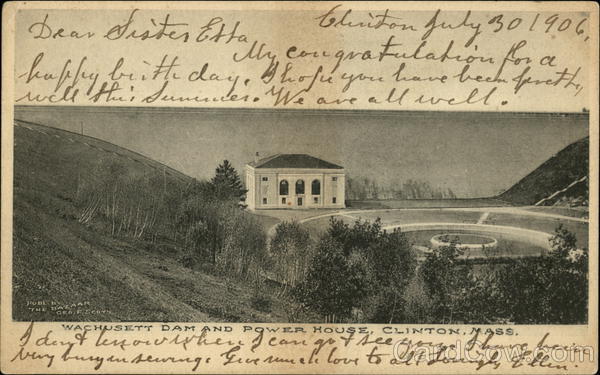 Dear Sister Etta Clinton July 30 1906,
My congratulation for a
happy birthday. I hope you have been pretty
well this Summer. We are all well.
PUBL. BY
THE BAZAAR
GEO. F. SCOTT
WACHUSETT DAM AND POWER HOUSE, CLINTON, MASS.
I don't know when I can go & see you. I have been
very busy in sewing. Give much love to all. Lovingly, Ellen.
CardCow.com